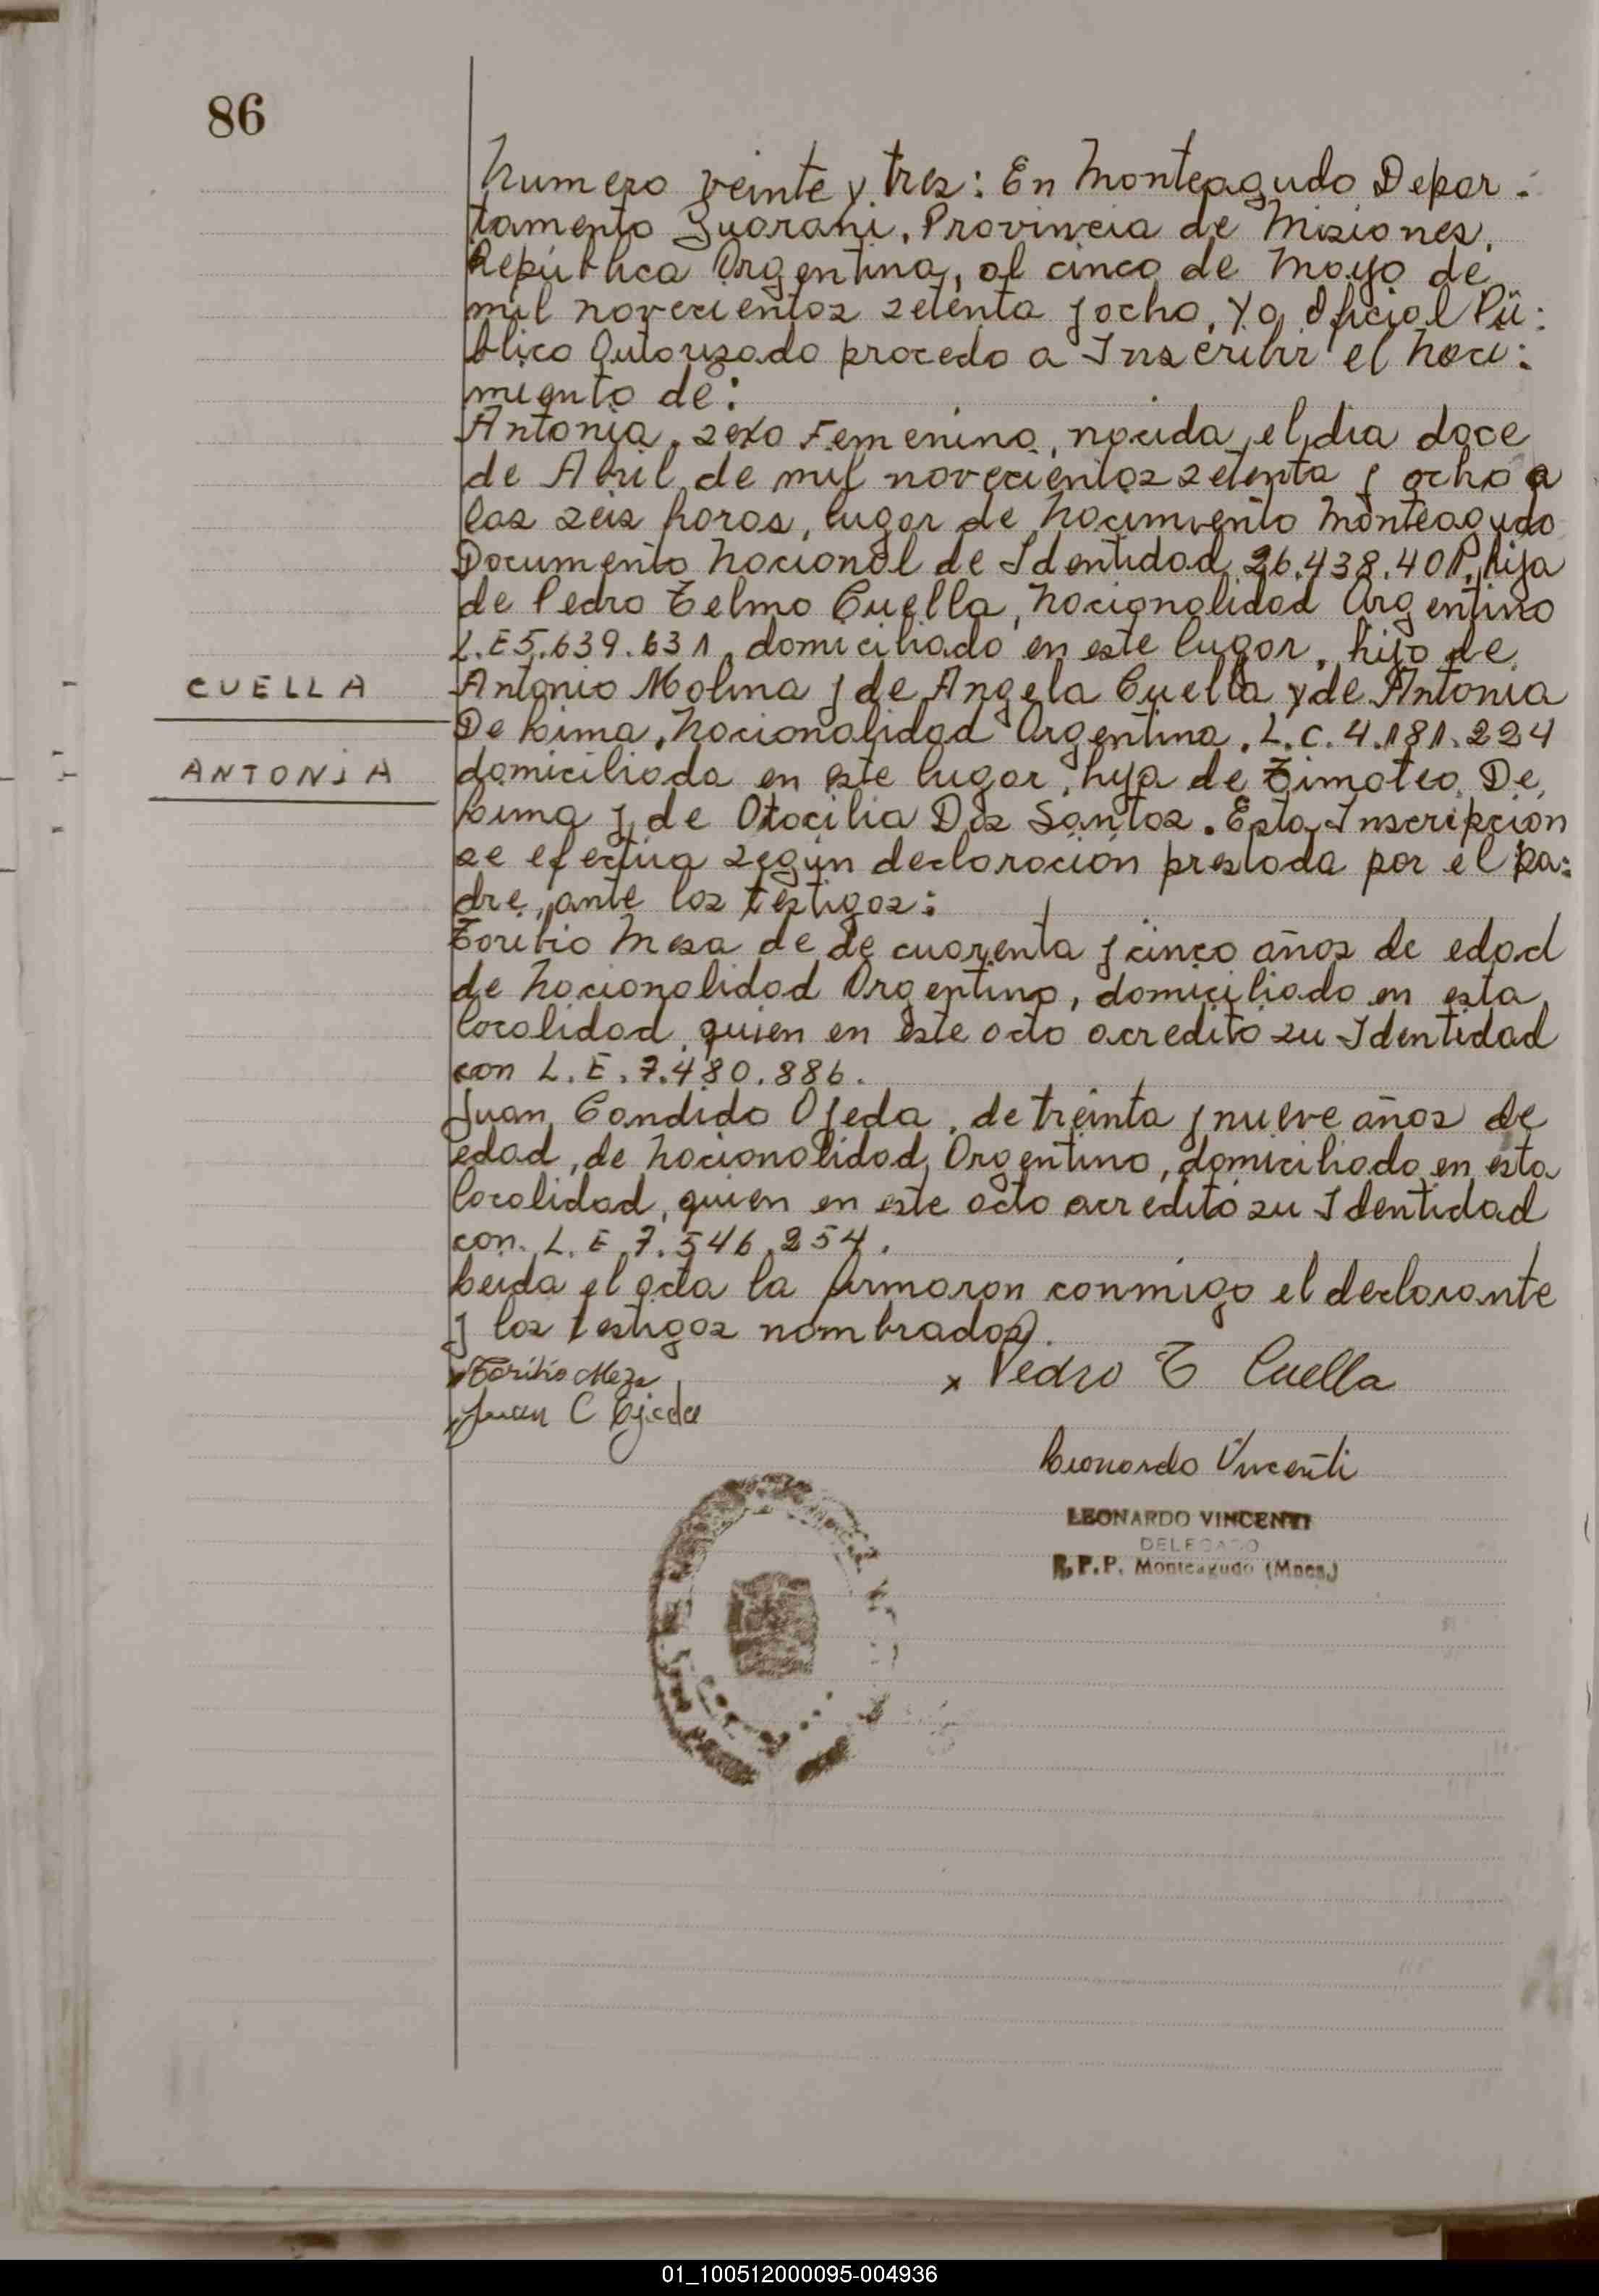 86
Numero veinte y tres: En Monteagudo Depar-
tamento Guarani, Provincia de Misiones,
República Argentina, al cinco de Mayo de
mil novecientos setenta y ocho, Yo Oficial Pú-
blico Autorizado procedo a Inscribir el Naci-
miento de:
Antonia, sexo Femenino, nacida el dia doce
de Abril de mil novecientos setenta y ocho a
las seis horas, lugar de Nacimiento Monteagudo
Documento Nacional de Identidad 26.438.401, hija
de Pedro Telmo Cuella, Nacionalidad Argentino
L.E 5.639.631, domiciliado en este lugar, hijo de
CUELLA
Antonio Molina y de Angela Cuella y de Antonia
De Lima, Nacionalidad Argentina, L.C. 4.181.224
ANTONIA
domiciliada en este lugar, hija de Timoteo De
Lima y de Otacilia Dos Santos. Esta Inscripcion
se efectúa según declaración prestada por el pa-
dre, ante los testigos:
Toribio Mesa de de cuarenta y cinco años de edad
de Nacionalidad Argentino, domiciliado en esta
localidad, quien en este acto acreditó su Identidad
con L.E. 7.480.886.
Juan Candido Ojeda, de treinta y nueve años de
edad, de Nacionalidad Argentino, domiciliado en esta
localidad, quien en este acto acreditó su Identidad
con. L.E 7.546.254.
Leida el acta la firmaron conmigo el declarante
y los testigos nombrados.
Toribio Meza
x Pedro T Cuella
Juan C Ojeda
Leonardo Vincenti
LEONARDO VINCENTI
DELEGADO
R.P.P. Monteagudo (Mnes.)
01_100512000095-004936